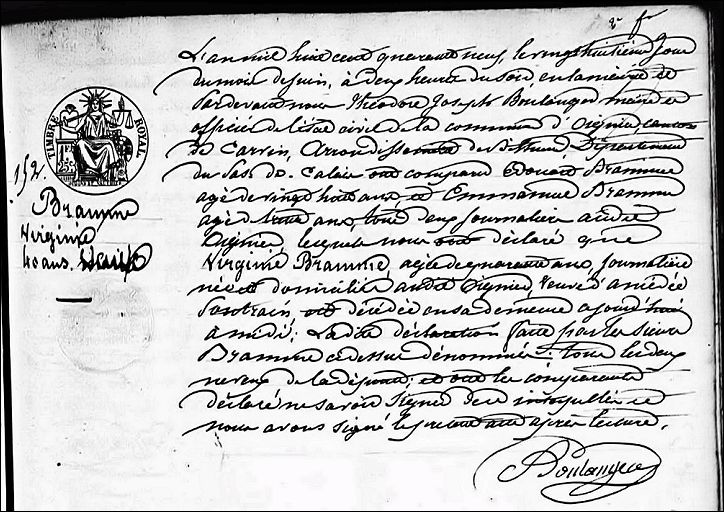 2e f
L'an mil huit cent quarante neuf, le vingt huitieme jour
du mois de juin, à deux heures du soir en la mairie et
Pardevant nous Théodore Joseph Boulanger maire et
officier de l'état civil de la commune d'Oignies, canton
de Carvin, Arrondissement de Béthune Département
du Pas-de-Calais ont comparu Edouard Bramme
agé de vingt huit ans, et Emmanuel Bramme
agé de trente ans, tous deux journaliers audit
Oignies lesquels nous ont déclaré que
Virginie Bramme, agée de quarante ans, journalière
née et domiciliée audit Oignies, veuve d'amédée
Sontrain, est décédée en sa demeure aujourd'hui
à midi; Ladite déclaration faite par les sieurs
Bramme ci-dessus dénommés; tous les deux
neveux de la défunte; et ont les comparants
déclaré ne savoir signer de ce interpellés et
nous avons signé le présent acte après lecture.
Boulanger
TIMBRE ROYAL
152.
Bramme
Virginie
40 ans.